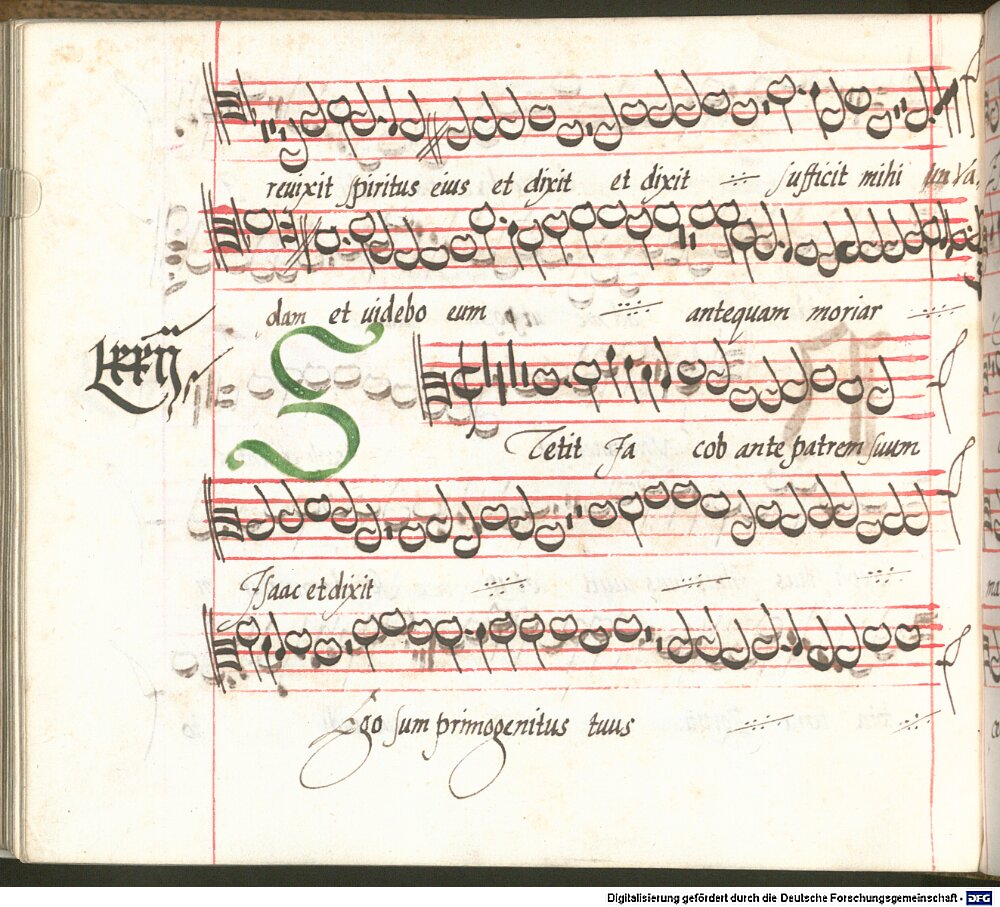 reuixit spiritus eius et dixit et dixit sufficit mihi un Va,
dam et uidebo eum antequam moriar
Lxxij
S
Tetit Ja cob ante patrem suum
Isaac et dixit
Ego sum primogenitus tuus
Digitalisierung gefördert durch die Deutsche Forschungsgemeinschaft - DFG